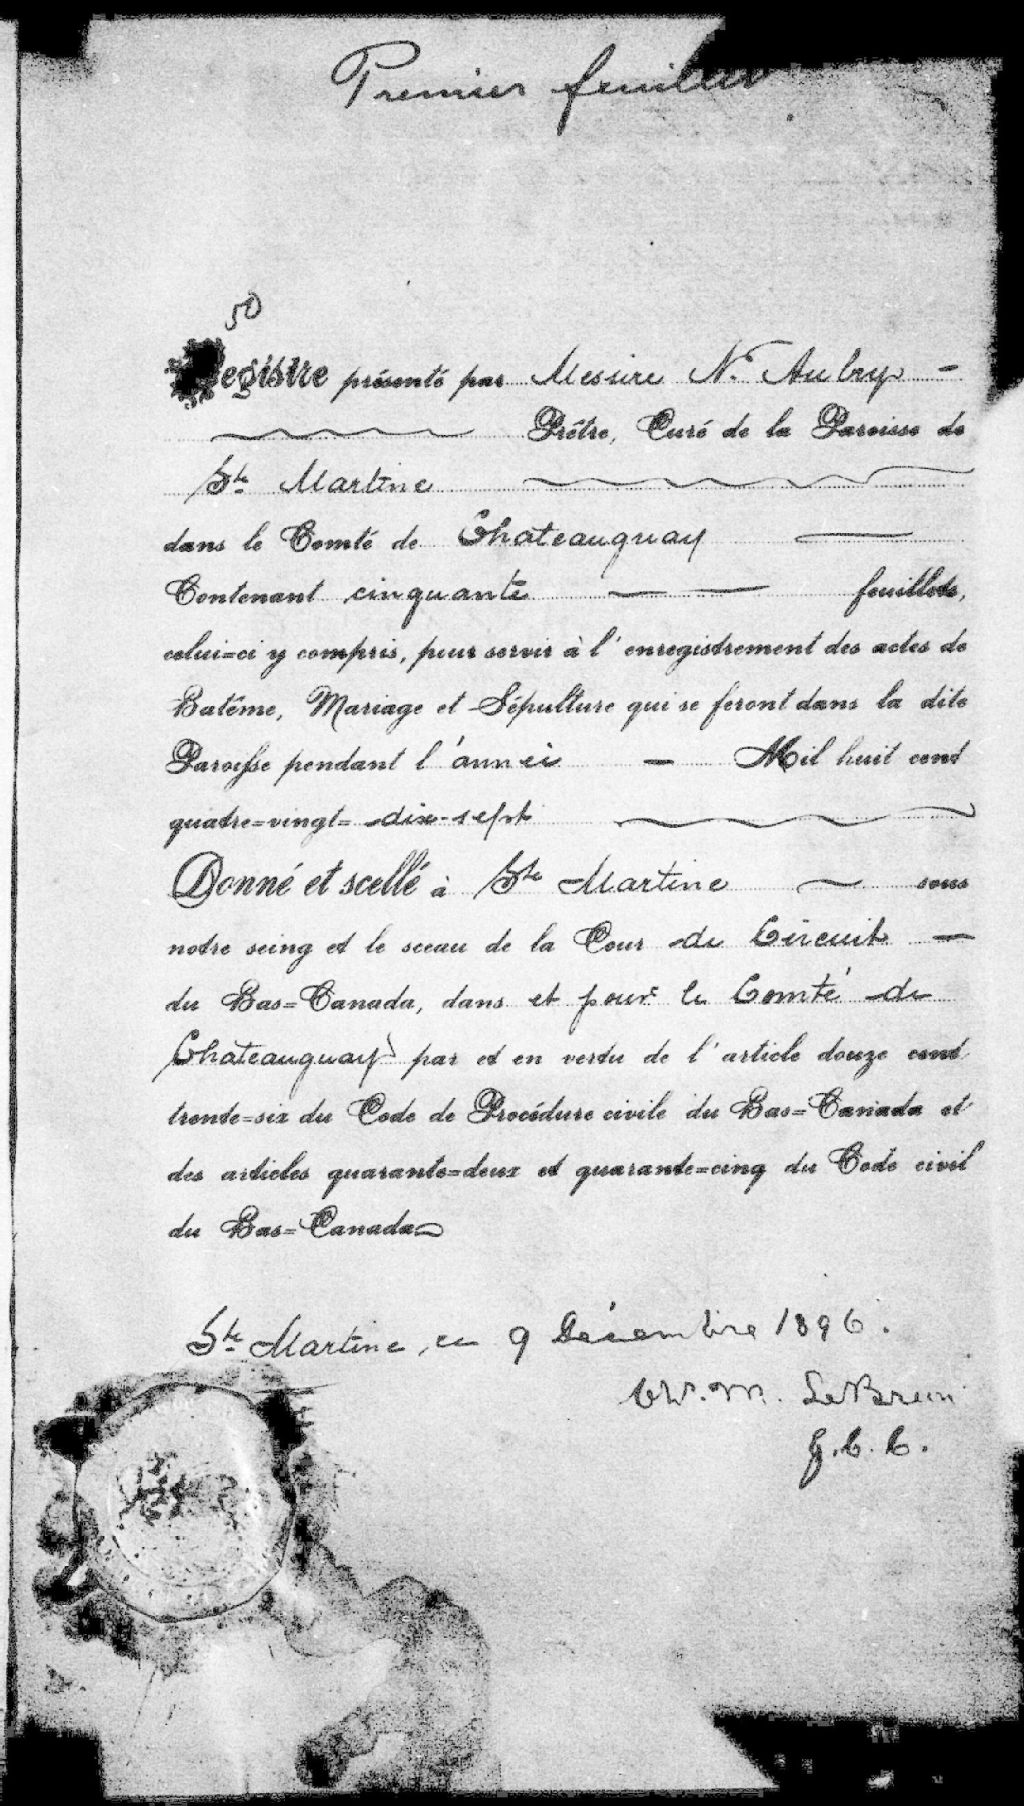 Premier feuillet
50
Registre présenté par Messire N. Aubry -
Prêtre, Curé de la Paroisse de
Ste Martine
dans le Comté de Chateauguay
Contenant cinquante feuillets,
celui=ci y compris, pour servir à l'enregistrement des actes de
Batême, Mariage et Sépulture qui se feront dans la dite
Paroisse pendant l'année - Mil huit cent
quatre=vingt=dix-sept
Donné et scellé à Ste Martine sous
notre seing et le sceau de la Cour de Circuit -
du Bas=Canada, dans et pour le Comté de
Chateauguay par et en vertu de l'article douze cent
trente=six du Code de Procédure civile du Bas=Canada et
des articles quarante=deux et quarante=cinq du Code civil
du Bas=Canada
Ste Martine, ce 9 Décembre 1896.
M. LeBrun
G.C.C.